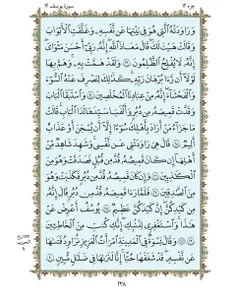 جزء ١٢
سورة يوسف ١٢
وَرَاوَدَتْهُ الَّتِي هُوَ فِي بَيْتِهَا عَن نَّفْسِهِ وَغَلَّقَتِ الْأَبْوَابَ
وَقَالَتْ هَيْتَ لَكَ قَالَ مَعَاذَ اللَّهِ إِنَّهُ رَبِّي أَحْسَنَ مَثْوَايَ
إِنَّهُ لَا يُفْلِحُ الظَّالِمُونَ ﴿٢٣﴾ وَلَقَدْ هَمَّتْ بِهِ وَهَمَّ بِهَا
لَوْلَا أَن رَّأَى بُرْهَانَ رَبِّهِ كَذَلِكَ لِنَصْرِفَ عَنْهُ السُّوءَ
وَالْفَحْشَاءَ إِنَّهُ مِنْ عِبَادِنَا الْمُخْلَصِينَ ﴿٢٤﴾ وَاسْتَبَقَا الْبَابَ
وَقَدَّتْ قَمِيصَهُ مِن دُبُرٍ وَأَلْفَيَا سَيِّدَهَا لَدَا الْبَابِ قَالَتْ
مَا جَزَاءُ مَنْ أَرَادَ بِأَهْلِكَ سُوءًا إِلَّا أَن يُسْجَنَ أَوْ عَذَابٌ
أَلِيمٌ ﴿٢٥﴾ قَالَ هِيَ رَاوَدَتْنِي عَن نَّفْسِي وَشَهِدَ شَاهِدٌ مِّنْ
أَهْلِهَا إِن كَانَ قَمِيصُهُ قُدَّ مِن قُبُلٍ فَصَدَقَتْ وَهُوَ مِنَ
الْكَاذِبِينَ ﴿٢٦﴾ وَإِن كَانَ قَمِيصُهُ قُدَّ مِن دُبُرٍ فَكَذَبَتْ وَهُوَ
مِنَ الصَّادِقِينَ ﴿٢٧﴾ فَلَمَّا رَأَى قَمِيصَهُ قُدَّ مِن دُبُرٍ قَالَ إِنَّهُ
مِن كَيْدِكُنَّ إِنَّ كَيْدَكُنَّ عَظِيمٌ ﴿٢٨﴾ يُوسُفُ أَعْرِضْ عَنْ
هَذَا وَاسْتَغْفِرِي لِذَنبِكِ إِنَّكِ كُنتِ مِنَ الْخَاطِئِينَ
﴿٢٩﴾ وَقَالَ نِسْوَةٌ فِي الْمَدِينَةِ امْرَأَتُ الْعَزِيزِ تُرَاوِدُ فَتَاهَا
عَن نَّفْسِهِ قَدْ شَغَفَهَا حُبًّا إِنَّا لَنَرَاهَا فِي ضَلَالٍ مُّبِينٍ ﴿٣٠﴾
٢٣٨